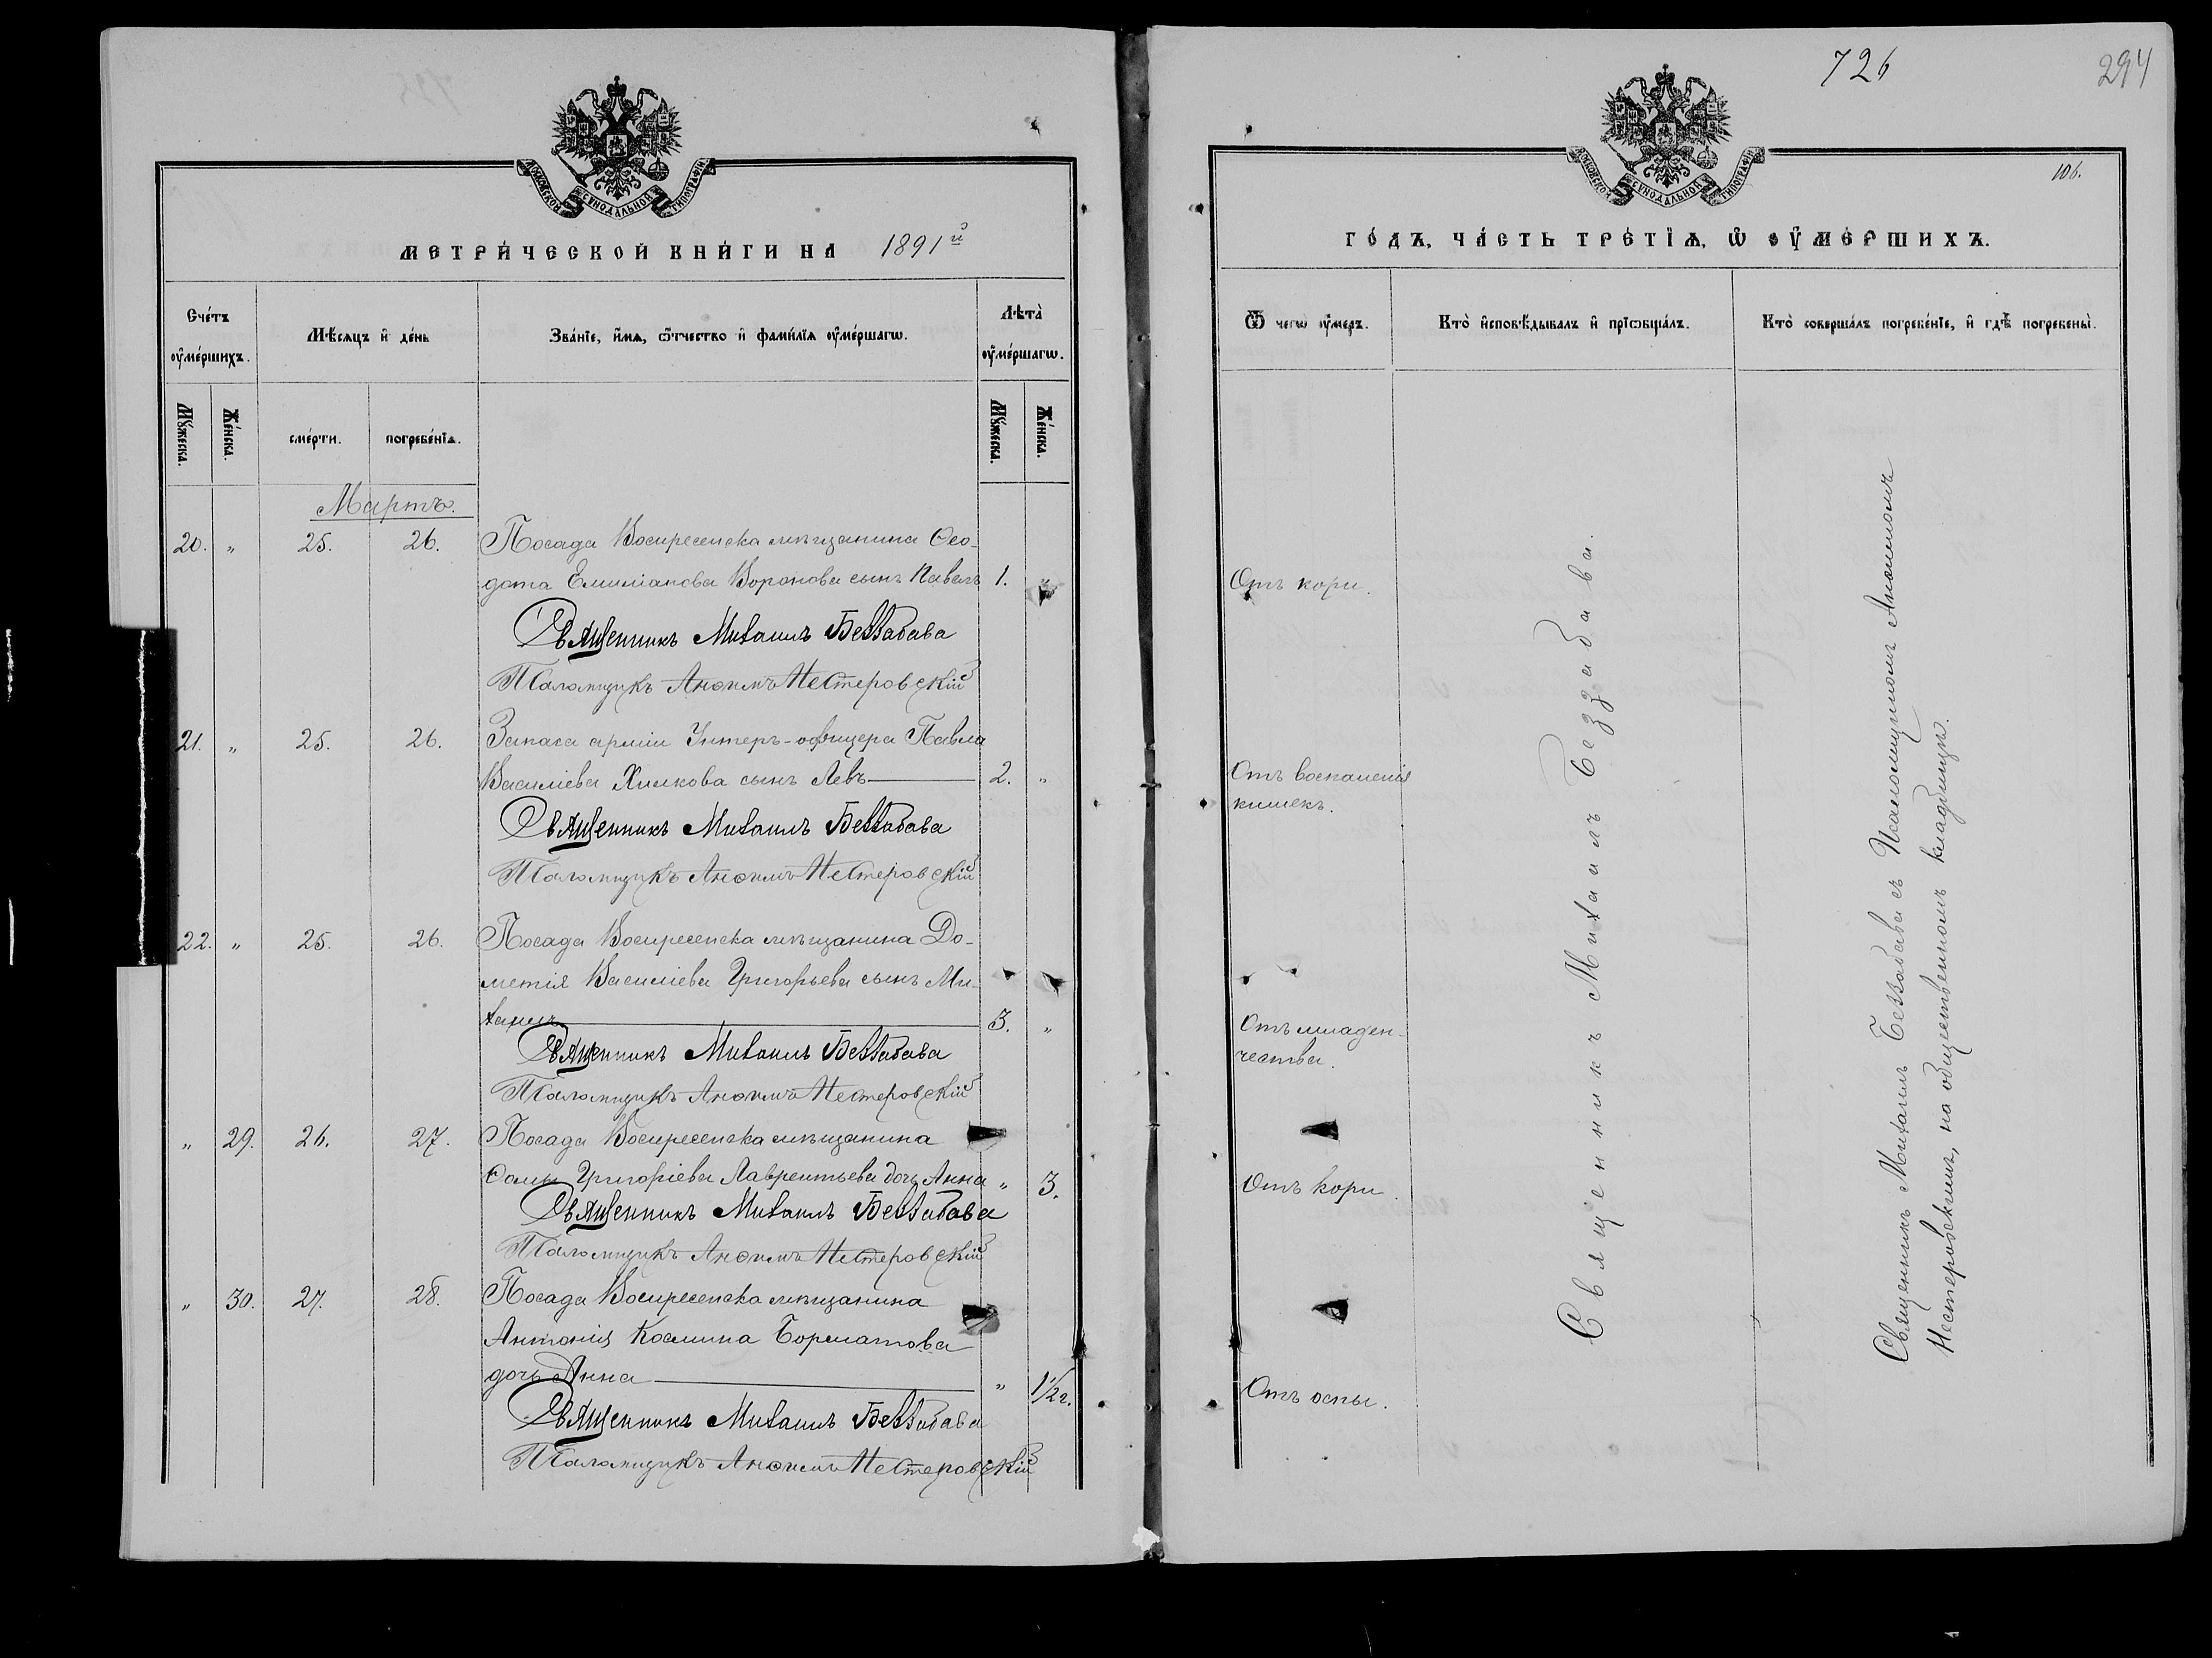 726
294
106.
МОСКОВСКОЙ СѴНОДАЛЬНОЙ ТИПОГРАФІИ
МЕТРИ́ЧЕСКОЙ КНИ́ГИ НА 1891й
Сче́тъ ᲂу҆ме́ршихъ.
Мѣ́сѧцъ и҆ де́нь
Зва́нїе, и҆́мѧ, ѻ҆́тчество и҆ фами́лїѧ ᲂу҆ме́ршагѡ.
Лѣта̀ ᲂу҆ме́ршагѡ.
Мꙋ́жеска.
Же́нска.
сме́рти.
погребе́нїѧ.
Мꙋ́жеска.
Же́нска.
Мартъ.
20. „ 25. 26. Посада Воскресенска мѣщанина Ѳео-
дота Емиліанова Воронова сынъ Павелъ 1. „
Священникъ Михаилъ Беззабава
Псаломщикъ Анѳимъ Нестеровскій
21. „ 25. 26. Запаса арміи Унтеръ-офицера Павла
Василіева Хилкова сынъ Левъ 2. „
Священникъ Михаилъ Беззабава
Псаломщикъ Анѳимъ Нестеровскій
22. „ 25. 26. Посада Воскресенска мѣщанина До-
метія Василіева Григорьева сынъ Ми-
хаилъ 3. „
Священникъ Михаилъ Беззабава
Псаломщикъ Анѳимъ Нестеровскій
„ 29. 26. 27. Посада Воскресенска мѣщанина
Ѳомы Григоріева Лаврентьева дочь Анна „ 3.
Священникъ Михаилъ Беззабава
Псаломщикъ Анѳимъ Нестеровскій
„ 30. 27. 28. Посада Воскресенска мѣщанина
Антонія Космина Борматова
дочь Анна „ 1½ г.
Священникъ Михаилъ Беззабава
Псаломщикъ Анѳимъ Нестеровскій
МОСКОВСКОЙ СѴНОДАЛЬНОЙ ТИПОГРАФІИ
ГО́ДЪ, ЧА́СТЬ ТРЕ́ТЇѦ, Ѡ҆ ОУ҆МЕ́РШИХЪ.
Ѿ чегѡ ᲂу҆́меръ.
Кто̀ и҆сповѣ́дывалъ и҆ прїѡбща́лъ.
Кто̀ соверша́лъ погребе́нїе, и҆ гдѣ̀ погребены̀.
Отъ кори.
Отъ воспаленія
кишекъ.
Отъ младен-
чества.
Отъ кори.
Отъ оспы.
Священникъ Михаилъ Беззабава.
Священникъ Михаилъ Беззабава съ Псаломщикомъ Анѳимомъ
Нестеровскимъ, на общественномъ кладбищѣ.